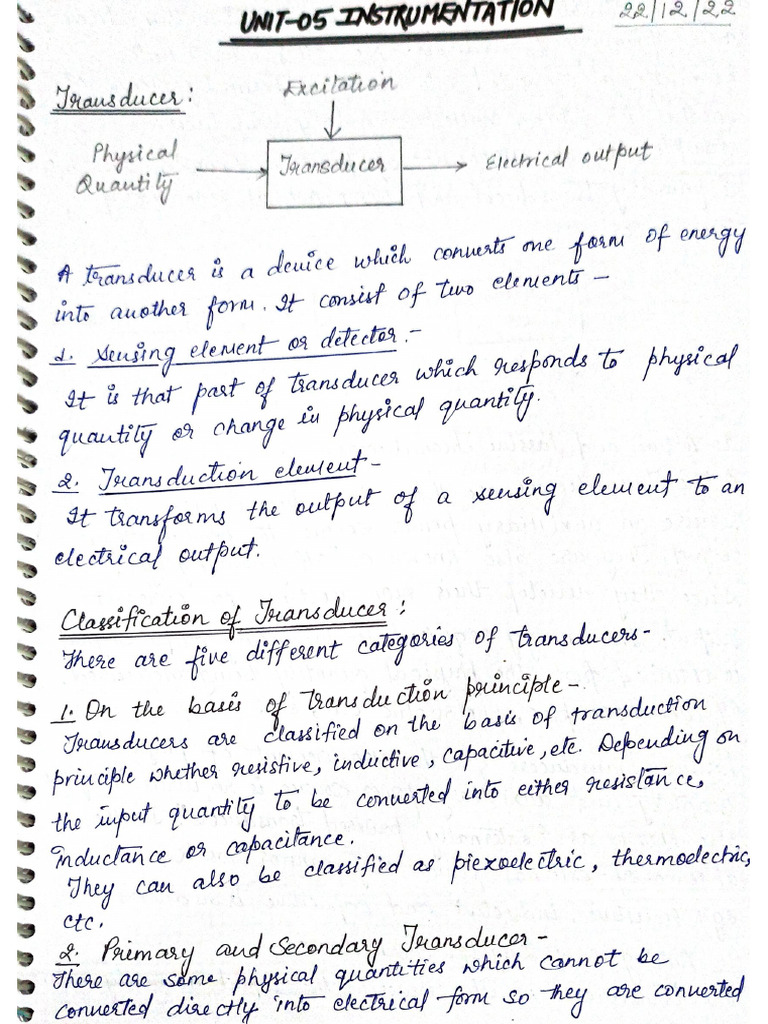 UNIT-05 INSTRUMENTATION
22/12/22
Transducer:
Excitation
Physical
Quantity
Transducer
Electrical output
A transducer is a device which converts one form of energy
into another form. It consist of two elements -
1. Sensing element or detector.-
It is that part of transducer which responds to physical
quantity or change in physical quantity.
2. Transduction element-
It transforms the output of a sensing element to an
electrical output.
Classification of Transducer:
There are five different categories of transducers-
1. On the basis of transduction principle-
Transducers are classified on the basis of transduction
principle whether resistive, inductive, capacitive, etc. Depending on
the input quantity to be converted into either resistance,
inductance or capacitance.
They can also be classified as piexoelectric, thermoelectric,
etc.
2. Primary and Secondary Transducer-
There are some physical quantities which cannot be
converted directly into electrical form so they are converted